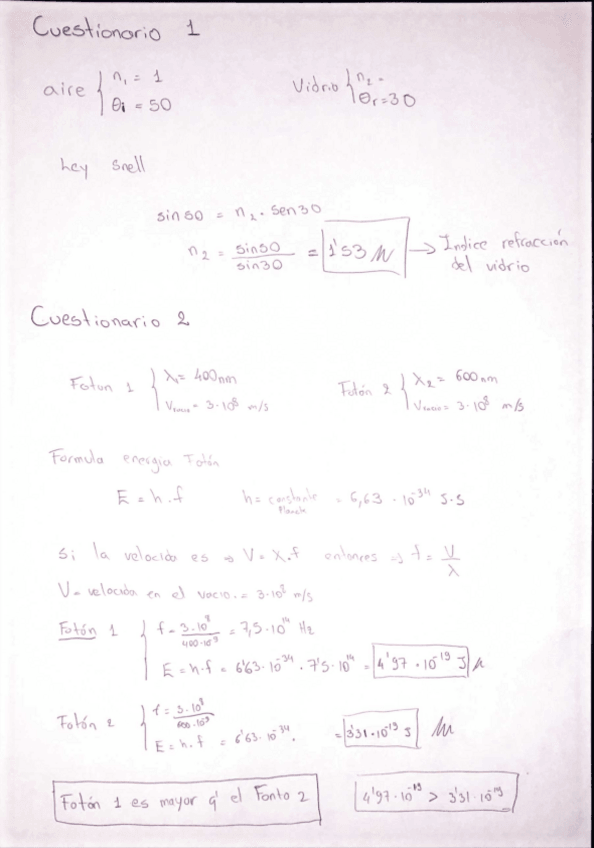 Cuestionario 1
aire { n₁ = 1
θi = 50
Vidrio { n₂ =
θr = 30
Ley Snell
sin 50 = n₂ · sen 30
n₂ = sin50 / sin30 = 1'53 → Indice refracción
del vidrio
Cuestionario 2
Foton 1 { λ₁ = 400 nm
Vvacio = 3·10⁸ m/s
Fotón 2 { λ₂ = 600 nm
Vvacio = 3·10⁸ m/s
Formula energia Fotón
E = h·f h = constante Planck = 6,63 · 10⁻³⁴ J·s
Si la velocida es ⇒ V = λ·f entonces ⇒ f = V/λ
V = velocida en el vacio. = 3·10⁸ m/s
Fotón 1 { f = 3·10⁸ / 400·10⁻⁹ = 7,5·10¹⁴ Hz
E = h·f = 6'63·10⁻³⁴ · 7'5·10¹⁴ = 4'97 · 10⁻¹⁹ J
Fotón 2 { f = 3·10⁸ / 600·10⁻⁹
E = h·f = 6'63·10⁻³⁴. = 3'31·10⁻¹⁹ J
Fotón 1 es mayor q' el Fonto 2
4'97·10⁻¹⁹ > 3'31·10⁻¹⁹